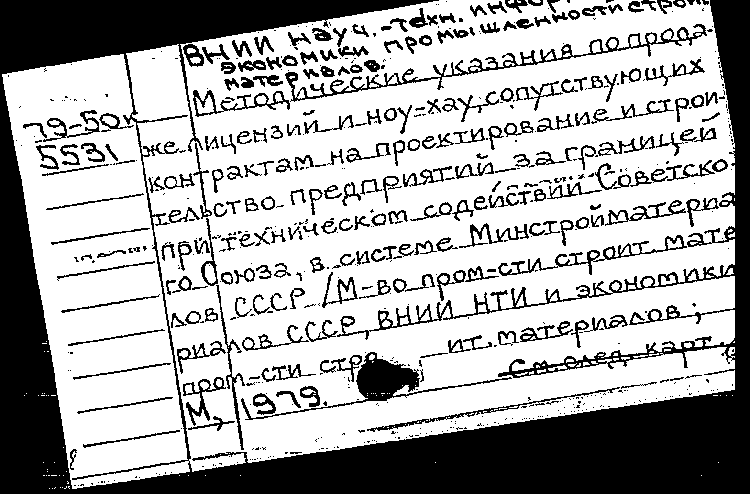 ВНИИ науч.-техн. инфор
экономики промышленности строит.
материалов.
Методические указания по прода-
79-50к
5531
же лицензий и ноу-хау, сопутствующих
контрактам на проектирование и строи-
тельство предприятий за границей
при техническом содействии Советско-
го Союза, в системе Минстройматериа
лов СССР / М-во пром-сти строит. мате
риалов СССР, ВНИИ НТИ и экономики
пром-сти стро ит. материалов;
См. след. карт.
М., 1979.